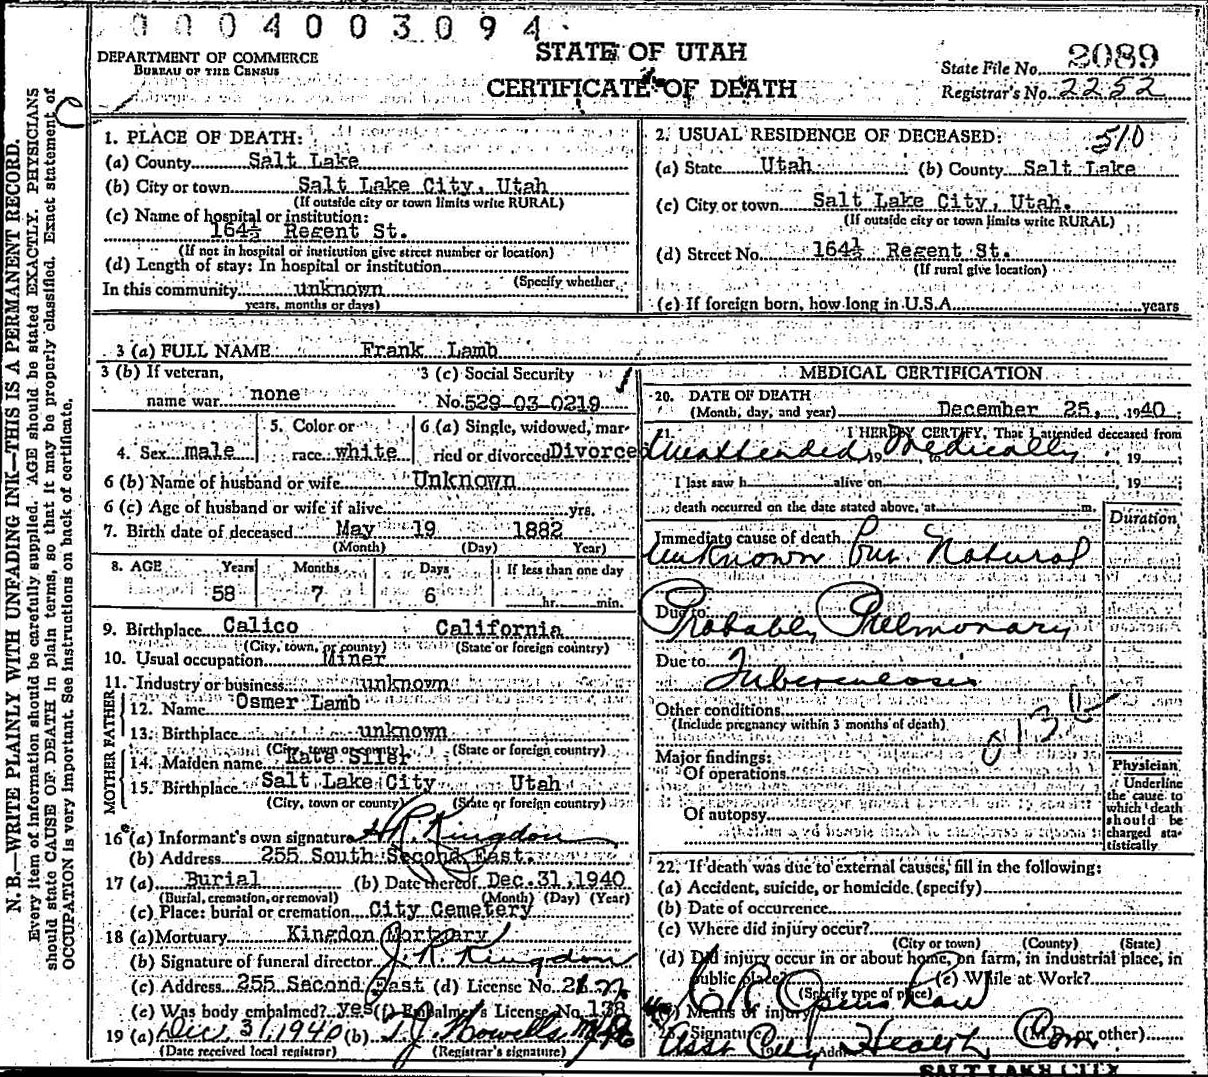 0004003094
DEPARTMENT OF COMMERCE
BUREAU OF THE CENSUS
STATE OF UTAH
CERTIFICATE OF DEATH
State File No. 2089
Registrar's No. 2252
N. B.—WRITE PLAINLY WITH UNFADING INK—THIS IS A PERMANENT RECORD.
Every item of information should be carefully supplied. AGE should be stated EXACTLY. PHYSICIANS
should state CAUSE OF DEATH in plain terms, so that it may be properly classified. Exact statement of
OCCUPATION is very important. See instructions on back of certificate.
1. PLACE OF DEATH:
(a) County Salt Lake
(b) City or town Salt Lake City, Utah
(If outside city or town limits write RURAL)
(c) Name of hospital or institution:
164½ Regent St.
(If not in hospital or institution give street number or location)
(d) Length of stay: In hospital or institution
(Specify whether
In this community unknown
years, months or days)
2. USUAL RESIDENCE OF DECEASED:
510
(a) State Utah (b) County Salt Lake
(c) City or town Salt Lake City, Utah.
(If outside city or town limits write RURAL)
(d) Street No. 164½ Regent St.
(If rural give location)
(e) If foreign born, how long in U.S.A. years
3 (a) FULL NAME Frank Lamb
3 (b) If veteran, 3 (c) Social Security
name war none No. 529-03-0219
4. Sex male 5. Color or race white 6 (a) Single, widowed, married or divorced Divorce
6 (b) Name of husband or wife Unknown
6 (c) Age of husband or wife if alive yrs.
7. Birth date of deceased May 19 1882
(Month) (Day) Year)
8. AGE Years Months Days If less than one day
58 7 6 hr. min.
9. Birthplace Calico California
(City, town, or county) (State or foreign country)
10. Usual occupation Miner
11. Industry or business unknown
FATHER
12. Name Osmer Lamb
13. Birthplace unknown
(City, town or county) (State or foreign country)
MOTHER
14. Maiden name Kate Siler
15. Birthplace Salt Lake City Utah
(City, town or county) (State or foreign country)
16 (a) Informant's own signature H R. Kingdon
(b) Address 255 South Second East.
17 (a) Burial (b) Date thereof Dec. 31, 1940
(Burial, cremation, or removal) (Month) (Day) (Year)
(c) Place: burial or cremation City Cemetery
18 (a) Mortuary Kingdon Mortuary
(b) Signature of funeral director J. R. Kingdon
(c) Address 255 Second East (d) License No.
(e) Was body embalmed? yes (f) Embalmer's License No. 138
19 (a) Dec. 31, 1940 (b) T. J. Howells
(Date received local registrar) (Registrar's signature)
MEDICAL CERTIFICATION
20. DATE OF DEATH
(Month, day, and year) December 25, 1940
21. I HEREBY CERTIFY, That I attended deceased from
Unattended Medically 19 to 19
I last saw h alive on 19
death occurred on the date stated above, at m.
Duration
Immediate cause of death
Unknown but Natural
Due to
Probably Pulmonary
Due to
Tuberculosis
Other conditions
(Include pregnancy within 3 months of death)
Major findings:
Of operations
Of autopsy
Physician
Underline
the cause to
which death
should be
charged sta-
tistically
22. If death was due to external causes, fill in the following:
(a) Accident, suicide, or homicide (specify)
(b) Date of occurrence
(c) Where did injury occur?
(City or town) (County) (State)
(d) Did injury occur in or about home, on farm, in industrial place, in
public place? (e) While at Work?
(Specify type of place)
Means of injury
Signature (M.D. or other)
Asst City Health Com.
SALT LAKE CITY